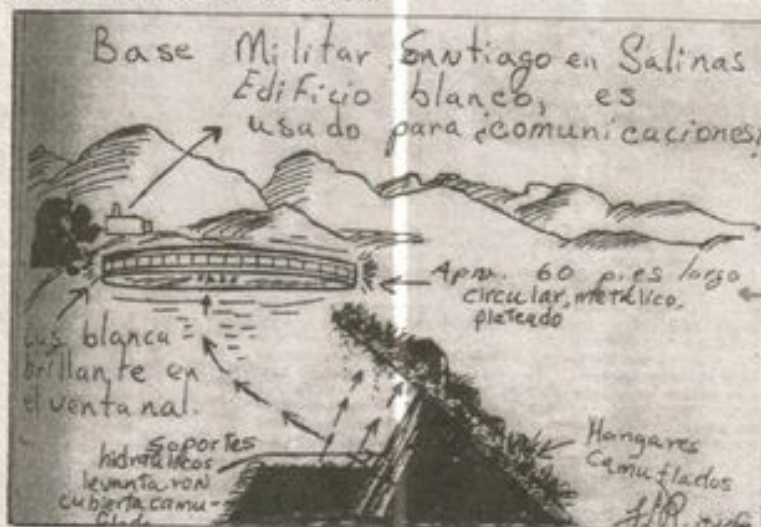 Base Militar Santiago en Salinas
Edificio blanco, es
usado para ¿comunicaciones?
Aprox. 60 pies largo
circular, metálico,
plateado
Luz blanca
brillante en
el ventanal.
soportes
hidraúlicos
levantaron
cubierta camu-
flada
Hangares
camuflados